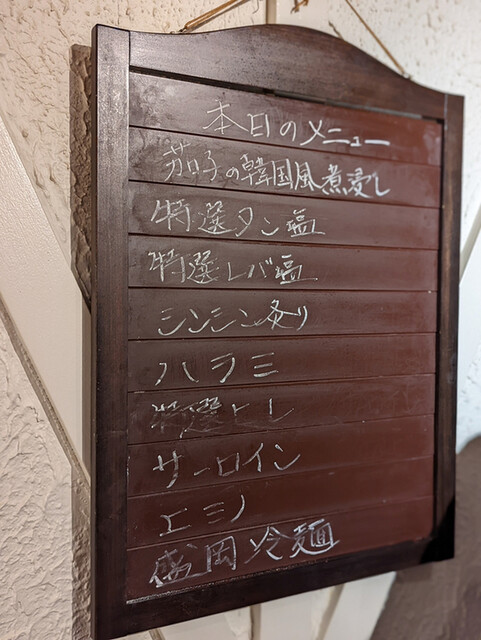 本日のメニュー
茄子の韓国風煮浸し
特選タン塩
特選レバ塩
シンシン炙り
ハラミ
特選ヒレ
サーロイン
エミノ
盛岡冷麺